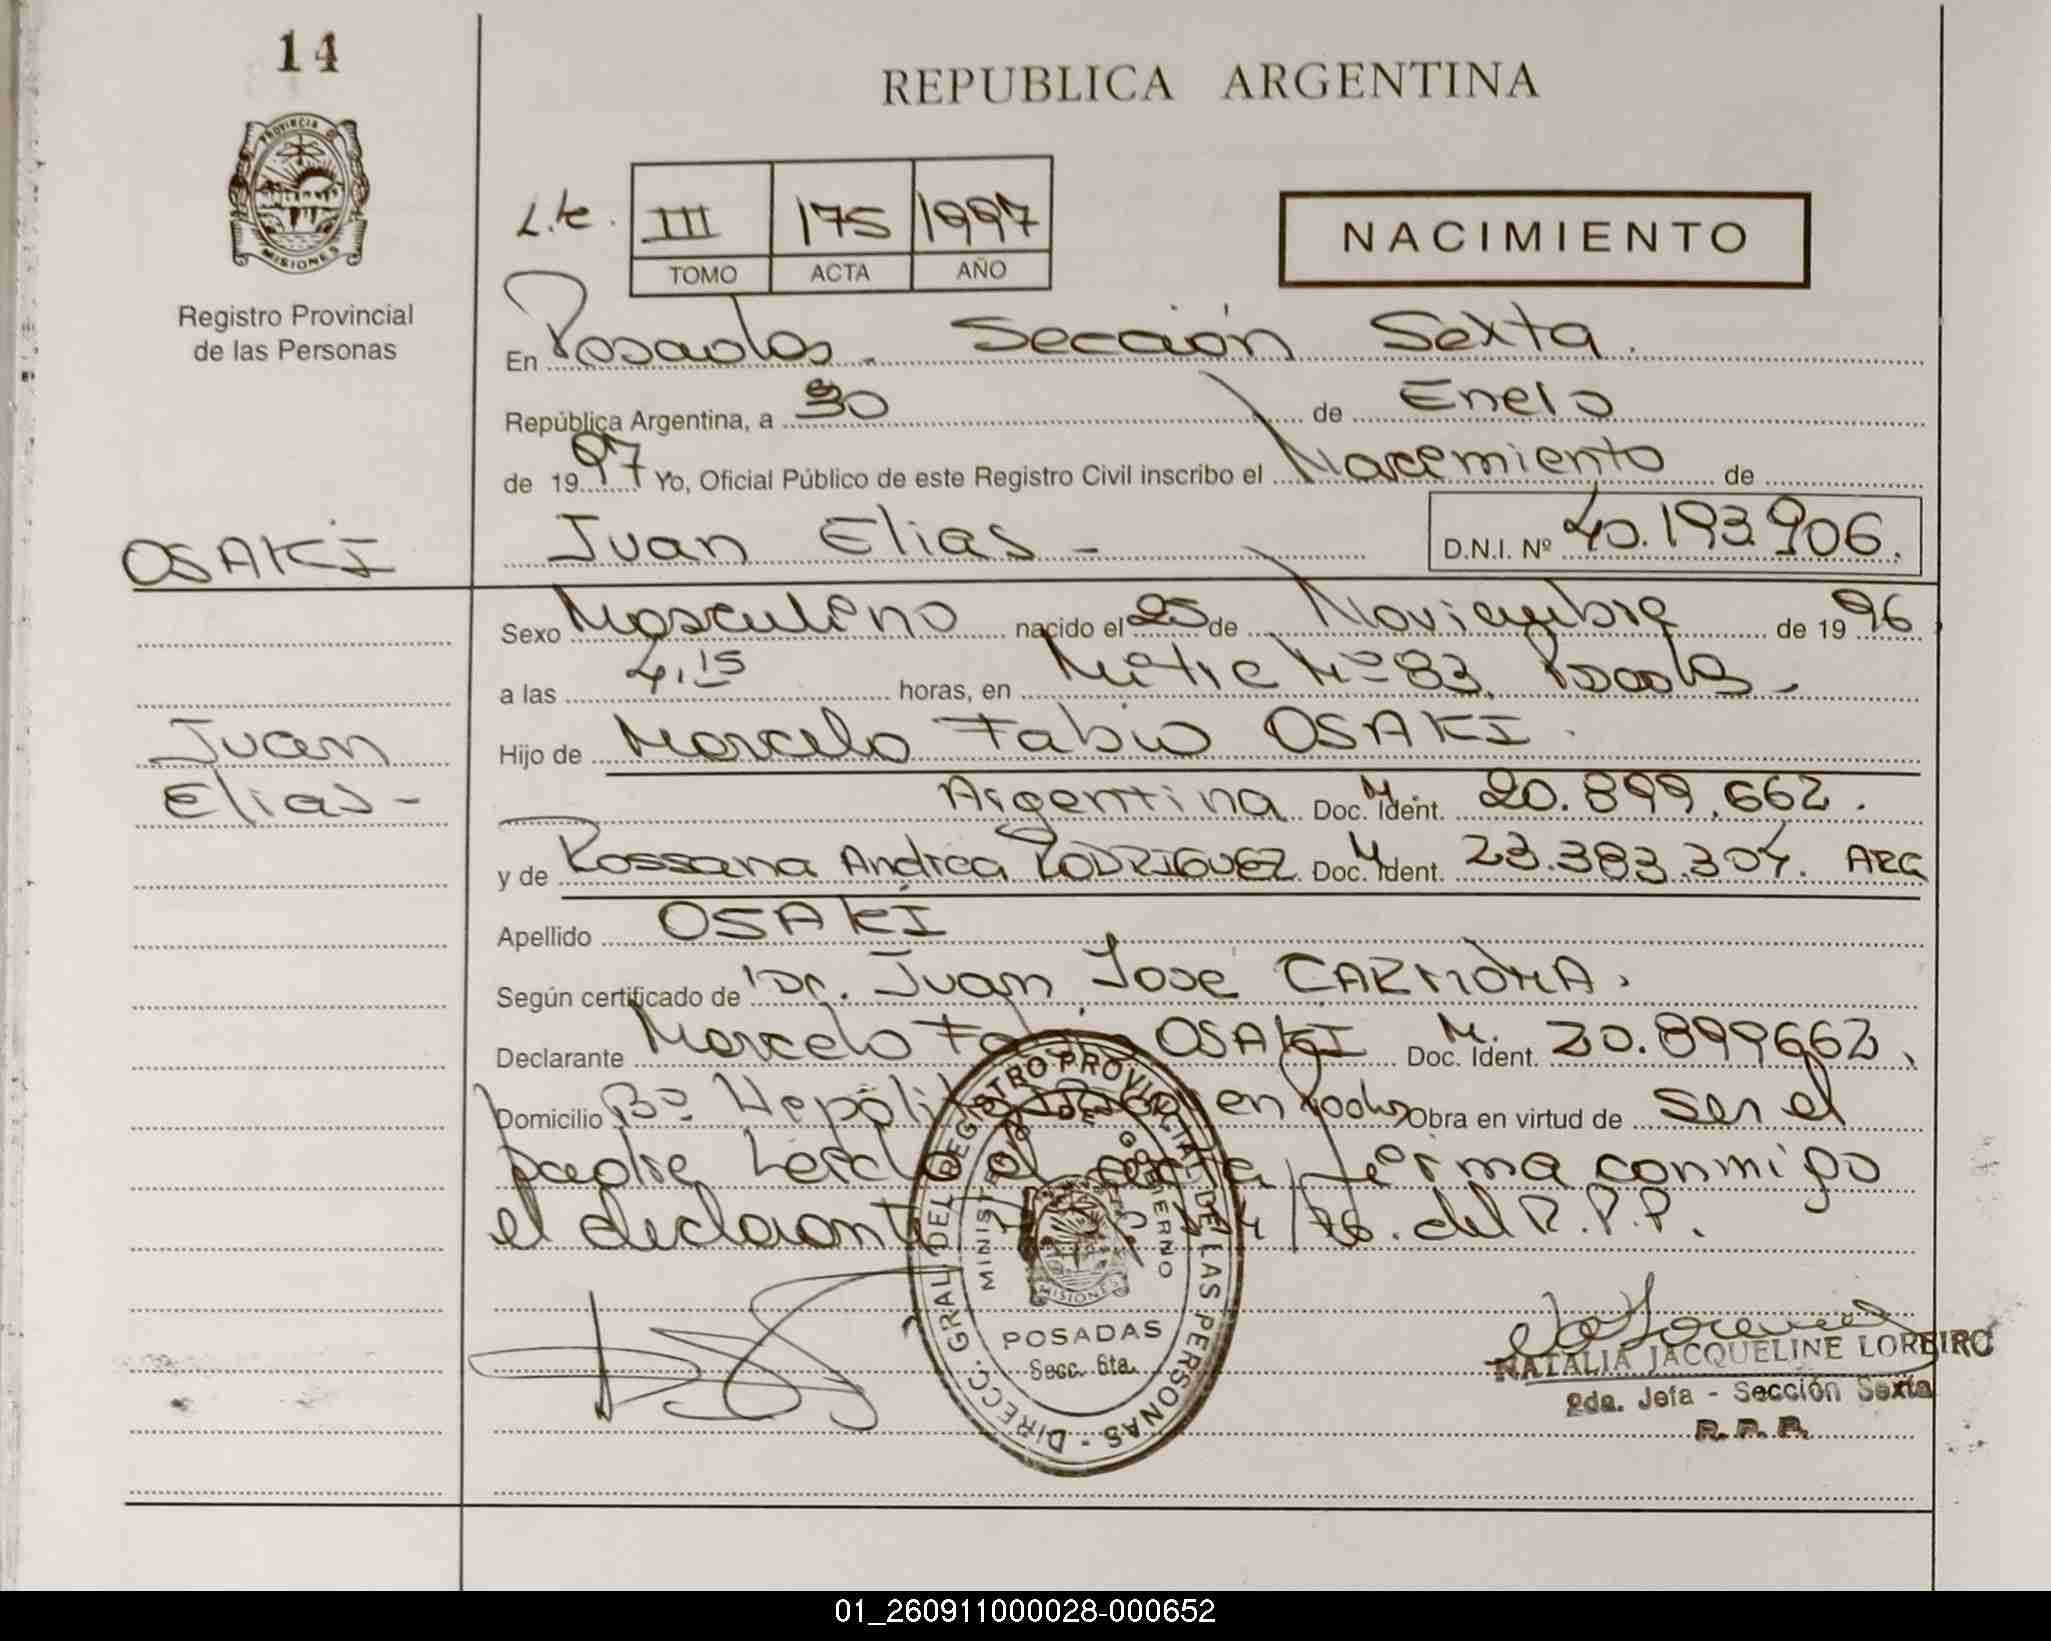 14
REPUBLICA ARGENTINA
PROVINCIA DE
MISIONES
Registro Provincial
de las Personas
III 175 1997
TOMO ACTA AÑO
NACIMIENTO
En Posadas. Sección Sexta.
República Argentina, a 30 de Enero
de 1997 Yo, Oficial Público de este Registro Civil inscribo el Nacimiento de
OSAKI
Juan Elias - D.N.I. Nº 40.193.906.
Sexo Masculino nacido el 25 de Noviembre de 1996
a las 4,15 horas, en Mitre Nº 83. Posadas.
Juan
Elias -
Hijo de Marcelo Fabio OSAKI.
Argentina Doc. M. Ident. 20.899.662.
y de Rossana Andrea RODRIGUEZ Doc. M Ident. 23.383.304. ARG
Apellido OSAKI
Según certificado de Dr. Juan José CARMONA.
Declarante Marcelo OSAKI Doc. M. Ident. 20.899662.
Domicilio Bº en Obra en virtud de ser el
padre el acta firma conmigo
el declarante /76. del R.P.P.
DIRECC. GRAL. DEL REGISTRO PROVINCIAL DE LAS PERSONAS
MINISTERIO DE GOBIERNO
MISIONES
POSADAS
Secc. 6ta.
NATALIA JACQUELINE LOREIRO
2da. Jefa - Sección Sexta
R. P. P.
01_260911000028-000652